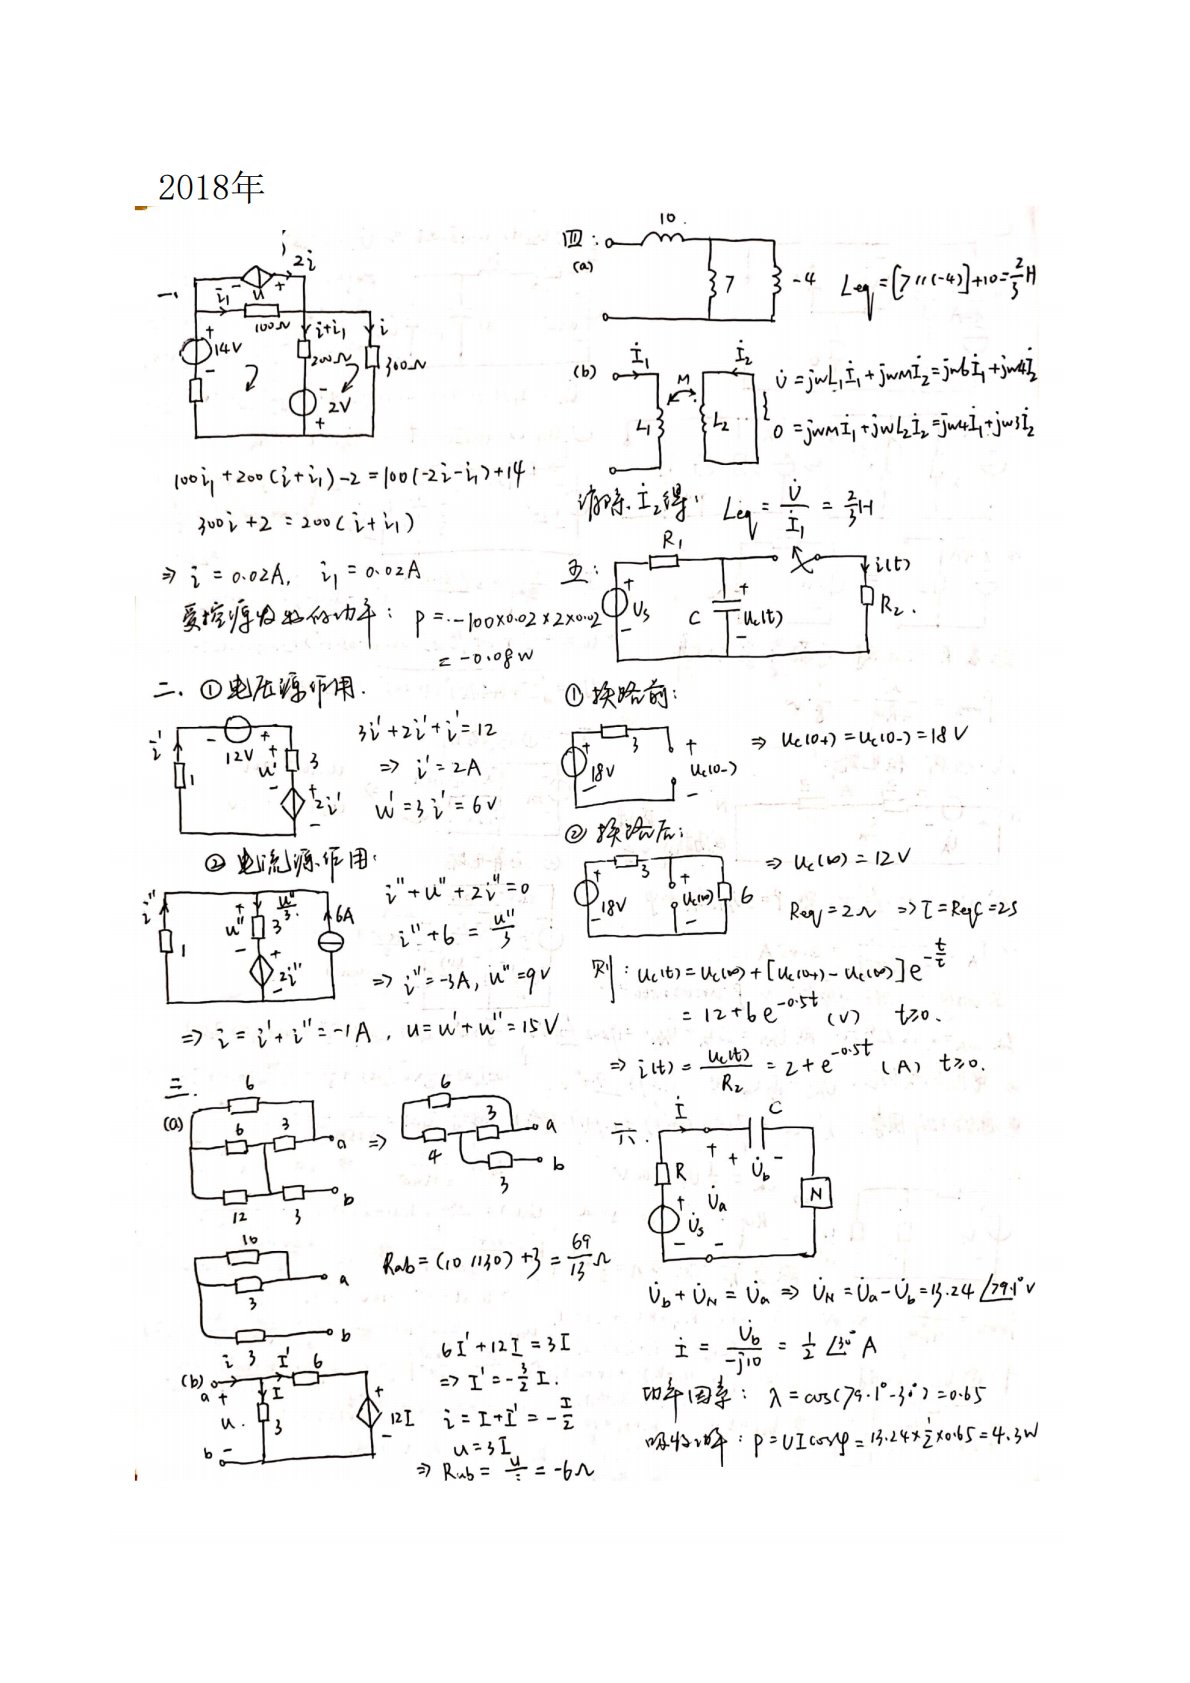 2018年
一、
i
2i
- u +
i₁
100Ω
i+i₁
i
+
14V
-
200Ω
300Ω
-
2V
+
100i₁+200(i+i₁)-2=100(-2i-i₁)+14
300i+2=200(i+i₁)
⇒ i=0.02A, i₁=0.02A
受控源发出的功率: P=-100×0.02×2×0.02
=-0.08W
二、①电压源作用.
i'
- +
12V
1
+
u'
-
3
+
2i'
-
3i'+2i'+i'=12
⇒ i'=2A
u'=3i'=6V
②电流源作用:
i''
1
+
u''
-
u''/3
3
+
2i''
-
6A
i''+u''+2i''=0
i''+6=u''/3
⇒ i''=-3A, u''=9V
⇒ i=i'+i''=-1A, u=u'+u''=15V
三.
(a)
6
6
3
a
12
3
b
⇒
6
3
a
4
3
b
10
3
a
3
b
Rab=(10//30)+3=69/13Ω
(b)
i
3
I'
6
a
+
u
-
b
I
3
+
12I
-
6I'+12I=3I
⇒ I'=-3/2 I.
i=I+I'=-I/2
u=3I
⇒ Rab=u/i=-6Ω
四:
(a)
10
7
-4
Leq=[7//(-4)]+10=2/3H
(b)
İ₁
M
İ₂
L₁
L₂
U̇=jωL₁İ₁+jωMİ₂=jω6İ₁+jω4İ₂
0=jωMİ₁+jωL₂İ₂=jω4İ₁+jω3İ₂
消除İ₂得: Leq=U̇/İ₁=2/3H
五:
R₁
+
Us
-
C
+
uc(t)
-
i(t)
R₂.
①换路前:
3
+
18V
-
+
uc(0-)
-
⇒ uc(0+)=uc(0-)=18V
②换路后:
3
+
18V
-
+
uc(∞)
-
6
⇒ uc(∞)=12V
Req=2Ω ⇒τ=ReqC=2S
则: uc(t)=uc(∞)+[uc(0+)-uc(∞)]e^(-t/τ)
=12+6e^(-0.5t) (V) t≥0.
⇒ i(t)=uc(t)/R₂=2+e^(-0.5t) (A) t≥0.
六.
İ
C
+
+ U̇b -
R
U̇a
N
+
U̇s
-
-
U̇b+U̇N=U̇a ⇒ U̇N=U̇a-U̇b=13.24∠79.1°V
İ=U̇b/-j10=1/2∠30°A
功率因率: λ=cos(79.1°-30°)=0.65
吸收功率: P=UIcosφ=13.24×1/2×0.65=4.3W